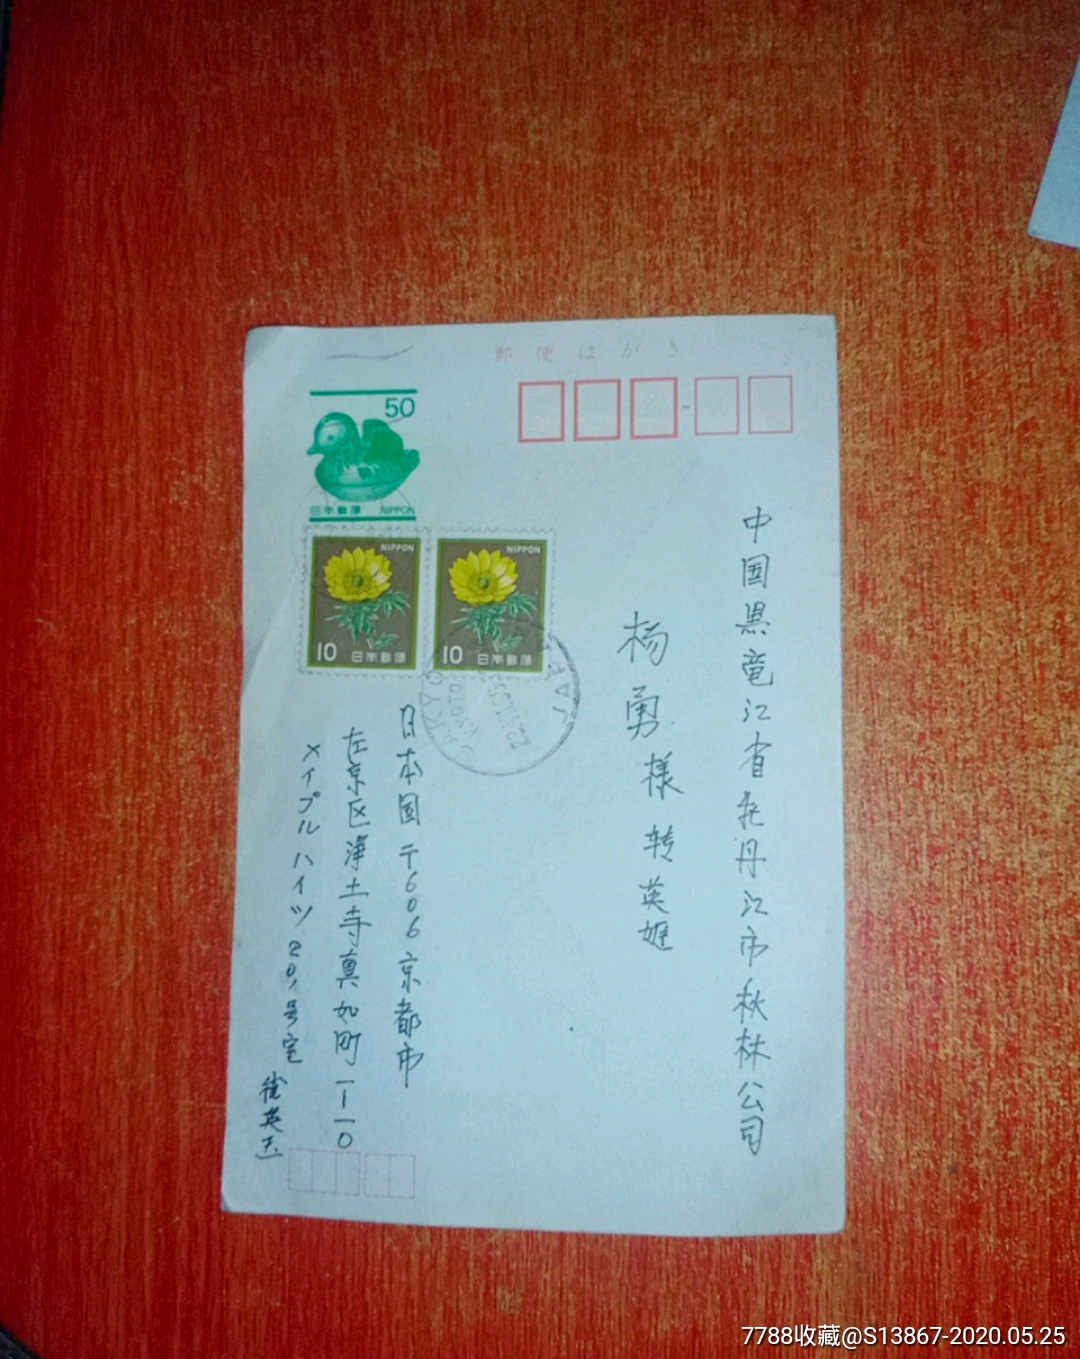 郵便はがき
50
日本郵便 NIPPON
NIPPON
10 日本郵便
NIPPON
10 日本郵便
SAKYO
KYOTO
JAPAN
中国黒竜江省牡丹江市秋林公司
杨勇様转英姬
日本国〒606京都市
左京区浄土寺真如町1-10
メイプルハイツ201号室
徐英玉
7788收藏@S13867-2020.05.25